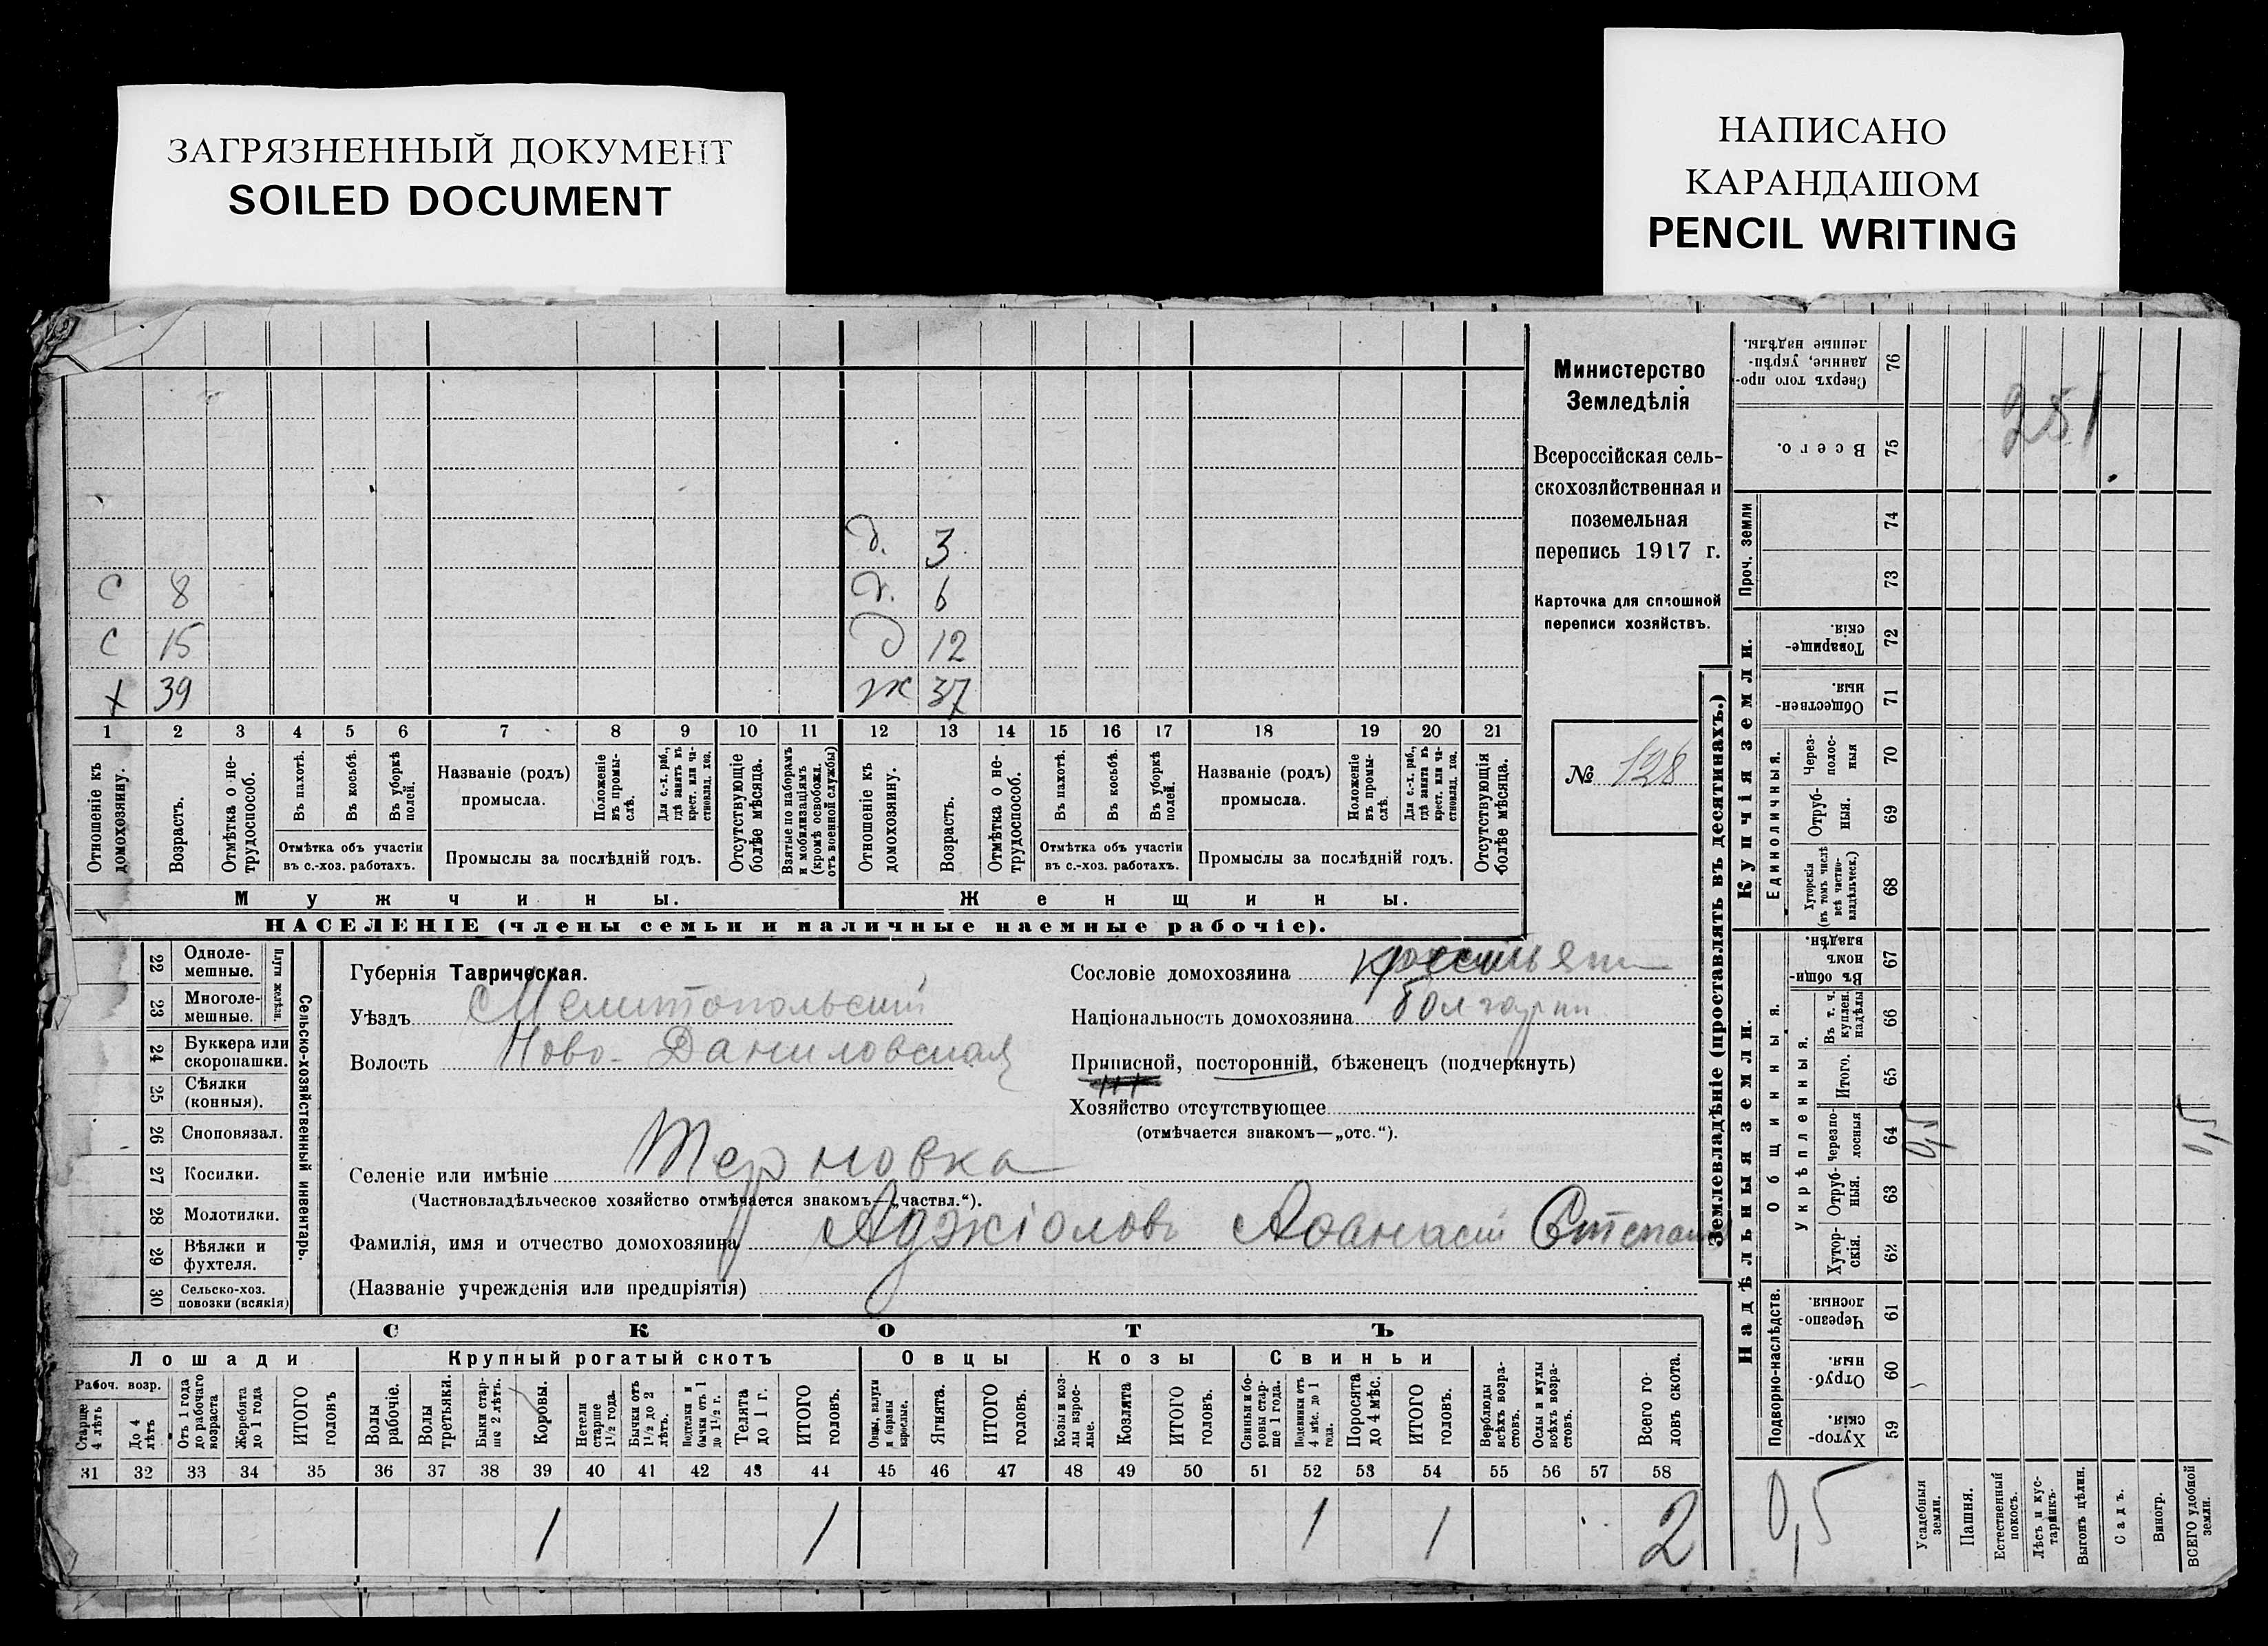 ЗАГРЯЗНЕННЫЙ ДОКУМЕНТ
SOILED DOCUMENT
НАПИСАНО
КАРАНДАШОМ
PENCIL WRITING
д. 3
С 8 д. 6
С 15 д 12
х 39 ж 37
1 2 3 4 5 6 7 8 9 10 11 12 13 14 15 16 17 18 19 20 21
Отношеніе къ домохозяину.
Возрастъ.
Отмѣтка о нетрудоспособ.
Въ пахотѣ.
Въ косьбѣ.
Въ уборкѣ полей.
Отмѣтка объ участіи
въ с.-хоз. работахъ.
Названіе (родъ)
промысла.
Положеніе въ промыслѣ.
Для с.-х. раб., гдѣ занятъ въ крест. или частновлад. хоз.
Промыслы за послѣдній годъ.
Отсутствующіе болѣе мѣсяца.
Взятые по наборамъ и мобилизаціямъ (кромѣ освобожд. отъ военной службы)
Отношеніе къ домохозяину.
Возрастъ.
Отмѣтка о нетрудоспособ.
Въ пахотѣ.
Въ косьбѣ.
Въ уборкѣ полей.
Отмѣтка объ участіи
въ с.-хоз. работахъ.
Названіе (родъ)
промысла.
Положеніе въ промыслѣ.
Для с.-х. раб., гдѣ занята въ крест. или частновлад. хоз.
Промыслы за послѣдній годъ.
Отсутствующія болѣе мѣсяца.
Мужчины. Женщины.
НАСЕЛЕНІЕ (члены семьи и наличные наемные рабочіе).
Министерство
Земледѣлія
Всероссійская сель-
скохозяйственная и
поземельная
перепись 1917 г.
Карточка для сплошной
переписи хозяйствъ.
№ 128
Сельско-хозяйственный инвентарь.
Плуги желѣзн.
22 Одноле-
мешные.
23 Многоле-
мешные.
24 Буккера или
скоропашки.
25 Сѣялки
(конныя).
26 Сноповязал.
27 Косилки.
28 Молотилки.
29 Вѣялки и
фухтеля.
30 Сельско-хоз.
повозки (всякія)
Губернія Таврическая.
Уѣздъ Мелитопольский
Волость Ново-Даниловская
Селеніе или имѣніе Терновка
(Частновладѣльческое хозяйство отмѣчается знакомъ—„частвл.“).
Фамилія, имя и отчество домохозяина Аджіоловъ Аѳанасій Степан
(Названіе учрежденія или предпріятія)
Сословіе домохозяина
Національность домохозяина болгарин
Приписной, посторонній, бѣженецъ (подчеркнуть)
Хозяйство отсутствующее
(отмѣчается знакомъ—„отс.“).
СКОТЪ
Лошади Крупный рогатый скотъ Овцы Козы Свиньи
Рабоч. возр.
Старше 4 лѣтъ
До 4 лѣтъ
Отъ 1 года до рабочаго возраста
Жеребята до 1 года
ИТОГО головъ.
Волы рабочіе.
Волы третьяки.
Быки старше 2 лѣтъ.
Коровы.
Нетели старше 1½ года.
Бычки отъ 1½ до 2 лѣтъ.
Подтелки и бычки отъ 1 до 1½ г.
Телята до 1 г.
ИТОГО головъ.
Овцы, валухи и бараны взрослые.
Ягнята.
ИТОГО головъ.
Козы и козлы взрослые.
Козлята
ИТОГО головъ.
Свиньи и боровы старше 1 года.
Подсвинки отъ 4 мѣс. до 1 года.
Поросята до 4 мѣс.
ИТОГО головъ.
Верблюды всѣхъ возрастовъ.
Ослы и мулы всѣхъ возрастовъ.
Всего головъ скота.
31 32 33 34 35 36 37 38 39 40 41 42 43 44 45 46 47 48 49 50 51 52 53 54 55 56 57 58
1 1 1 1 2
Землевладѣніе (проставлять въ десятинахъ.)
Сверхъ того проданные, укрѣпленные надѣлы. 76
251
Всего. 75
Купчія земли.
Проч. земли 74
73
Товарищескія. 72
Общественныя. 71
Единоличныя.
Черезполосныя 70
Отрубныя. 69
Хуторскія (въ томъ числѣ всѣ частновладѣльческ.) 68
Надѣльныя земли.
Общинныя.
Въ общинномъ владѣн. 67
Укрѣпленныя.
Въ т. ч. куплен. надѣлы 66
Итого. 65
Черезполосныя 64 0,5 0,5
Отрубныя. 63
Хуторскія. 62
Подворно-наслѣдств.
Черезполосныя. 61
Отрубныя. 60
Хуторскія. 59
0,5
Усадебныя земли.
Пашня.
Естественный покосъ.
Лѣсъ и кустарникъ.
Выгонъ цѣлин.
Садъ.
Виногр.
ВСЕГО удобной земли.